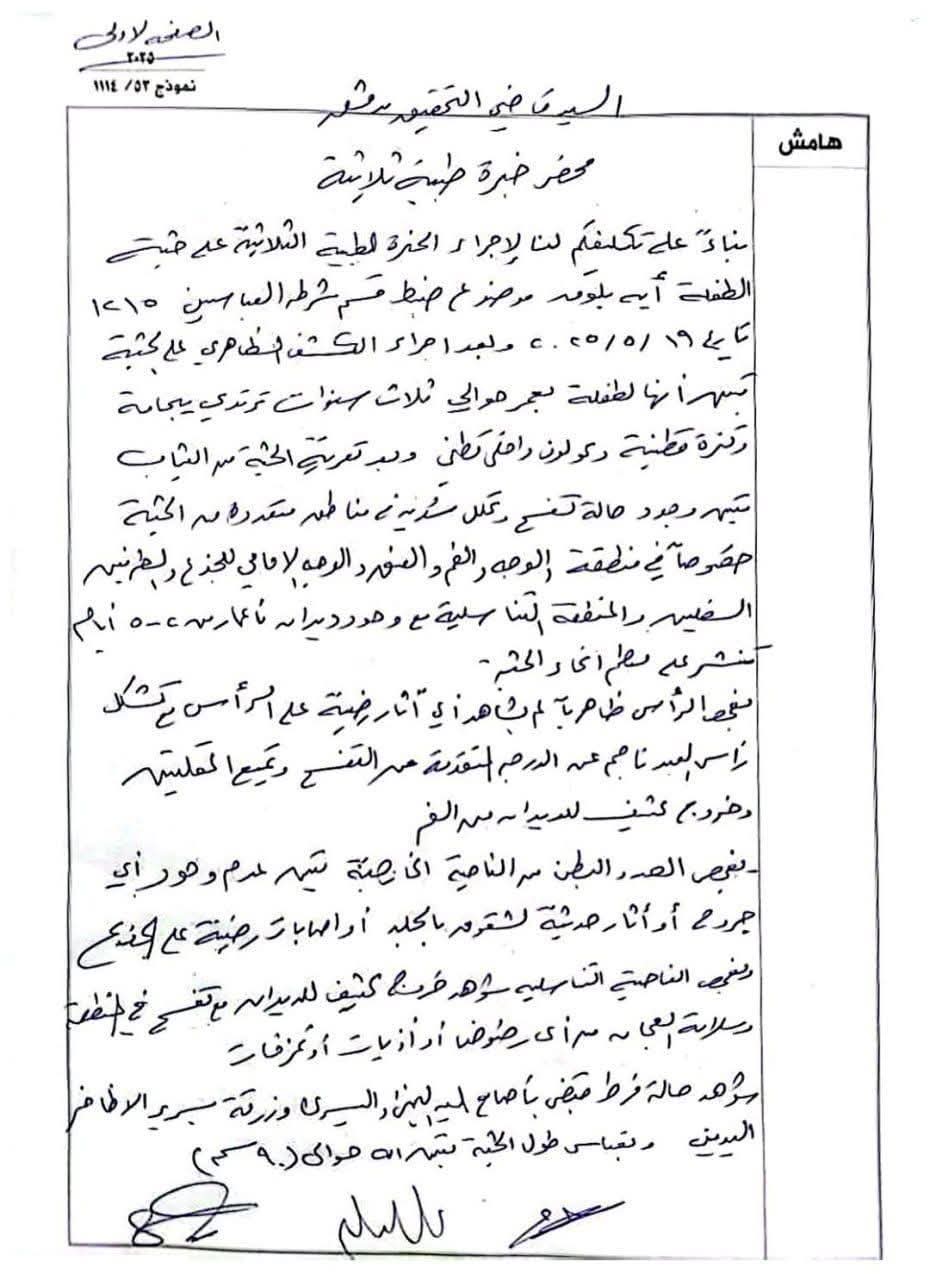 الصفحة الأولى
٢٠٢٥
نموذج ٥٣/ ١١١٤
السيد قاضي التحقيق بدمشق
هامش
محضر خبرة طبية ثلاثية
بناءً على تكليفكم لنا لإجراء الخبرة الطبية الثلاثية على جثة
الطفلة أية موضوع ضبط قسم شرطة العباسيين ١٢١٥
تاريخ ١٩ /٥/ ٢٠٢٥ وبعد اجراء الكشف الظاهري على الجثة
تبين أنها لطفلة بعمر حوالي ثلاث سنوات ترتدي بيجامة
وكنزة قطنية وكولون داخلي قطني وبعد تعرية الجثة من الثياب
تبين وجود حالة تفسخ وتحلل في مناطق متعددة من الجثة
خصوصاً في منطقة الوجه والفم والعنق والوجه الامامي للجذع والطرفين
السفليين والمنطقة التناسلية مع وجود ديدان بأعمار من ٢-٥ أيام
تنتشر على معظم انحاء الجثة -
بفحص الرأس ظاهرياً لم يشاهد أي آثار رضية على الرأس مع تشكل
رأس العبد ناجم عن الدرجة المتقدمة من التفسخ وتميع المقلتين
وخروج كثيف للديدان من الفم
- بفحص الصدر والبطن من الناحية الخارجية تبين عدم وجود أي
جروح أو أثار حديثة لشقوق بالجلد أو اصابات رضية على الجذع
وبفحص الناحية التناسلية شوهد خروج كثيف للديدان مع تفسخ في المنطقة
وسلامة العجان من أي رضوض أو أذيات أو تمزقات
شوهد حالة فرط قبض بأصابع اليد اليمنى واليسرى وزرقة بسرير الاظافر
اليدين وبقياس طول الجثة تبين انه حوالي (٩٠ سم)